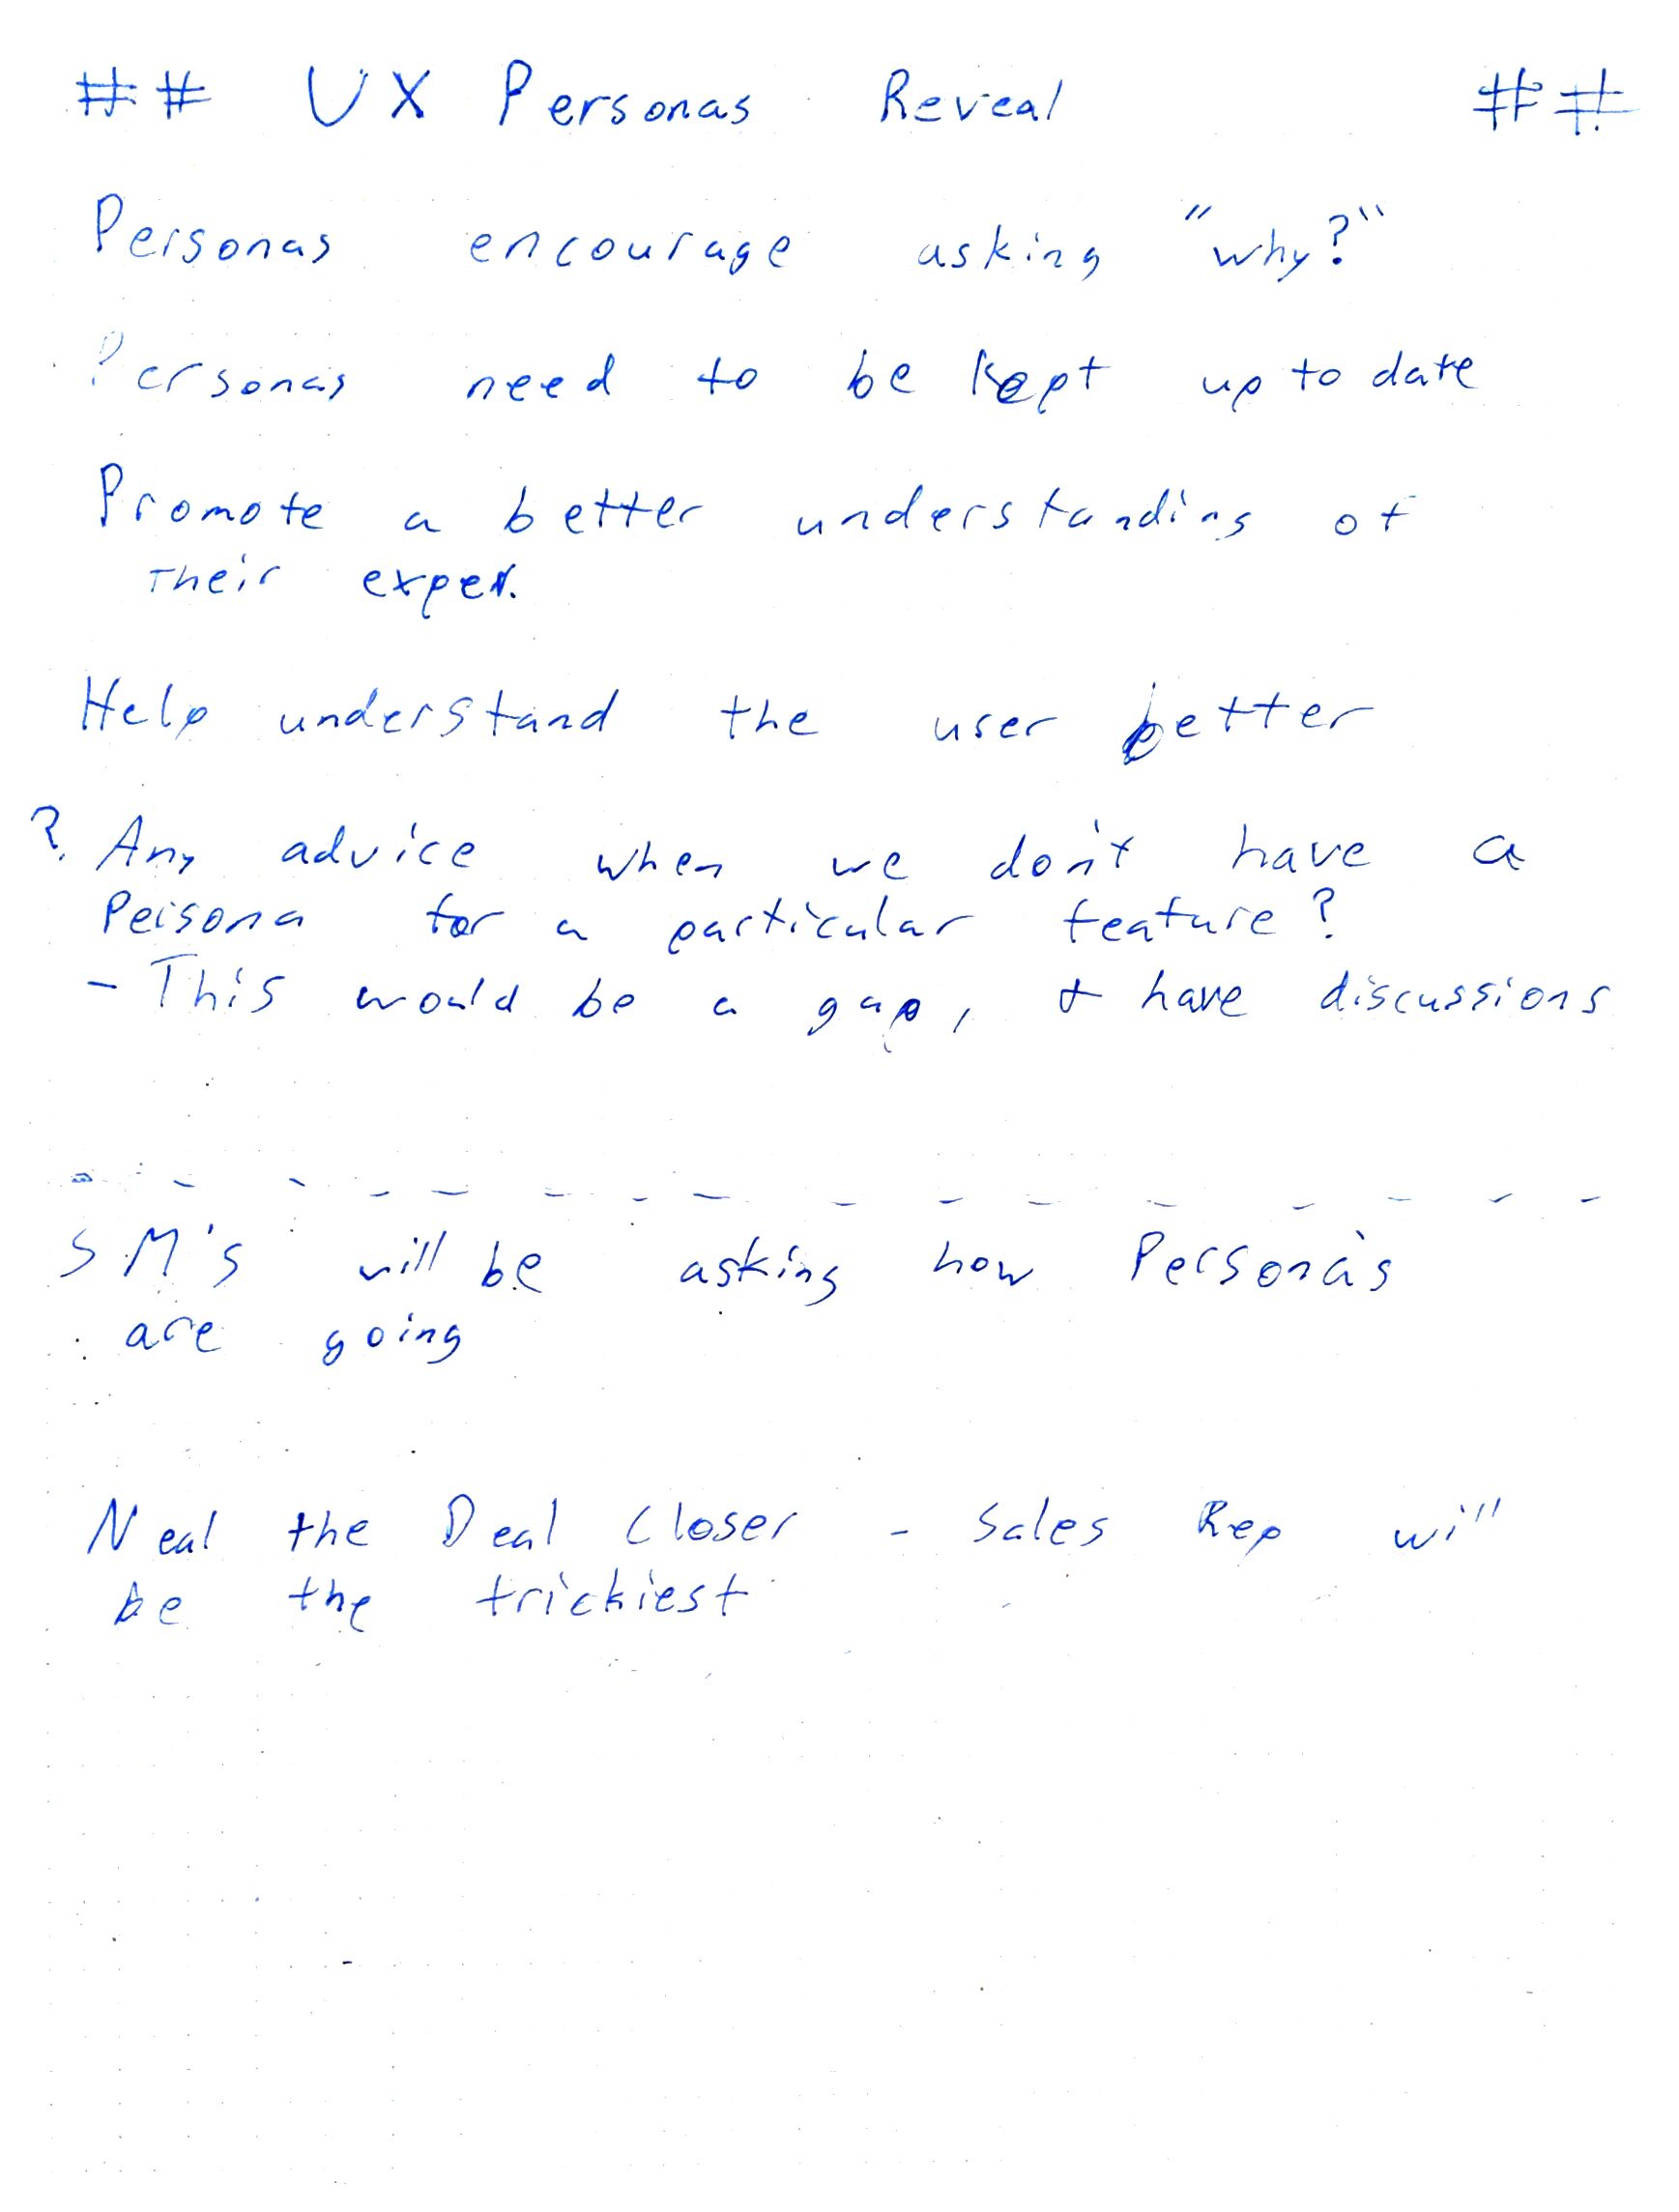 ## UX Personas Reveal ##
Personas encourage asking "why?"
Personas need to be kept up to date
Promote a better understanding of
their exper.
Help understand the user better
? Any advice when we don't have a
Persona for a particular feature?
- This would be a gap, & have discussions
- - - - - - - - - - - - - - - -
SM's will be asking how Persona's
are going
Neal the Deal Closer - Sales Rep will
be the trickiest